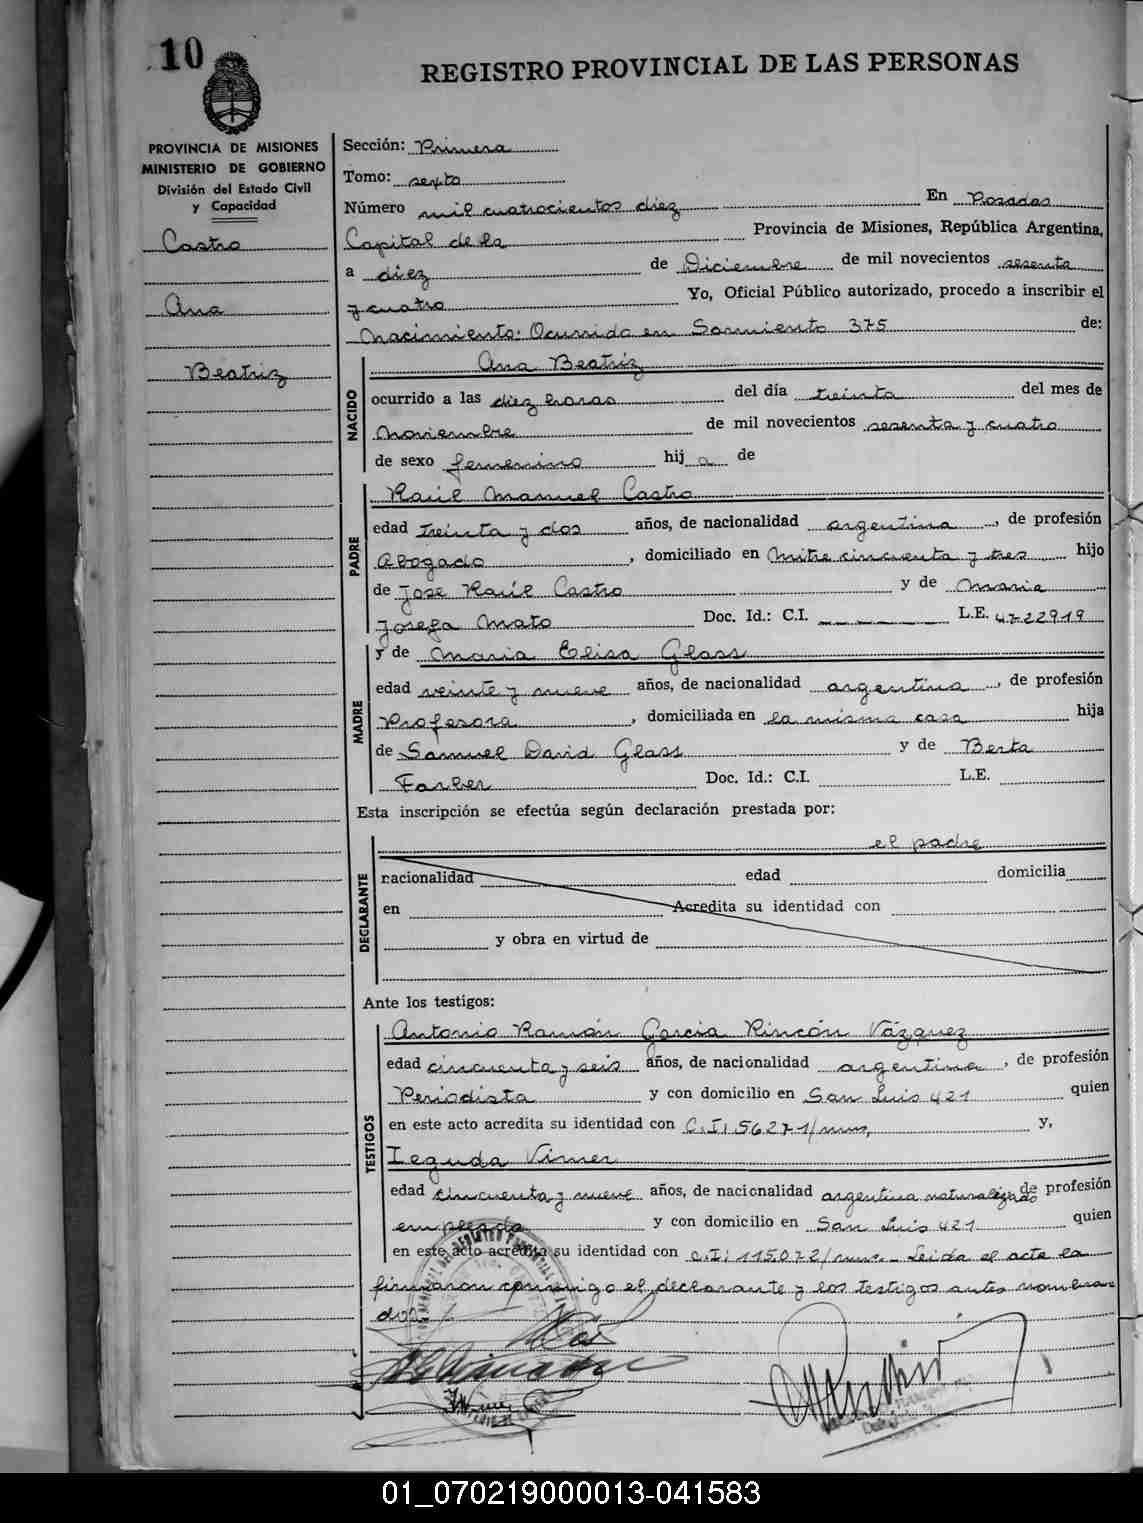 10
REGISTRO PROVINCIAL DE LAS PERSONAS
PROVINCIA DE MISIONES
MINISTERIO DE GOBIERNO
División del Estado Civil
y Capacidad
Castro
Ana
Beatriz
Sección: Primera
Tomo: sexto
Número mil cuatrocientos diez En Posadas
Capital de la Provincia de Misiones, República Argentina,
a diez de Diciembre de mil novecientos sesenta
y cuatro Yo, Oficial Público autorizado, procedo a inscribir el
Nacimiento: Ocurrido en Sarmiento 375 de:
NACIDO
Ana Beatriz
ocurrido a las diez horas del día treinta del mes de
Noviembre de mil novecientos sesenta y cuatro
de sexo femenino hij a de
PADRE
Raúl Manuel Castro
edad treinta y dos años, de nacionalidad argentina, de profesión
Abogado, domiciliado en Mitre cincuenta y tres hijo
de Jose Raúl Castro y de Maria
Josefa Mato Doc. Id.: C.I. L.E. 4722919
MADRE
y de Maria Elisa Glass
edad veinte y nueve años, de nacionalidad argentina, de profesión
Profesora, domiciliada en la misma casa hija
de Samuel David Glass y de Berta
Farber Doc. Id.: C.I. L.E.
Esta inscripción se efectúa según declaración prestada por:
DECLARANTE
el padre
nacionalidad edad domicilia
en Acredita su identidad con
y obra en virtud de
Ante los testigos:
TESTIGOS
Antonio Ramón Garcia Rincón Vázquez
edad cincuenta y seis años, de nacionalidad argentina, de profesión
Periodista y con domicilio en San Luis 421 quien
en este acto acredita su identidad con C.I: 56271/mnes, y,
Ieguda Virner
edad cincuenta y nueve años, de nacionalidad argentina naturalizado de profesión
empleado y con domicilio en San Luis 421 quien
en este acto acredita su identidad con C.I: 115.072/mnes. Leida el acta la
firmaron conmigo el declarante y los testigos antes nombra-
dos
01_070219000013-041583